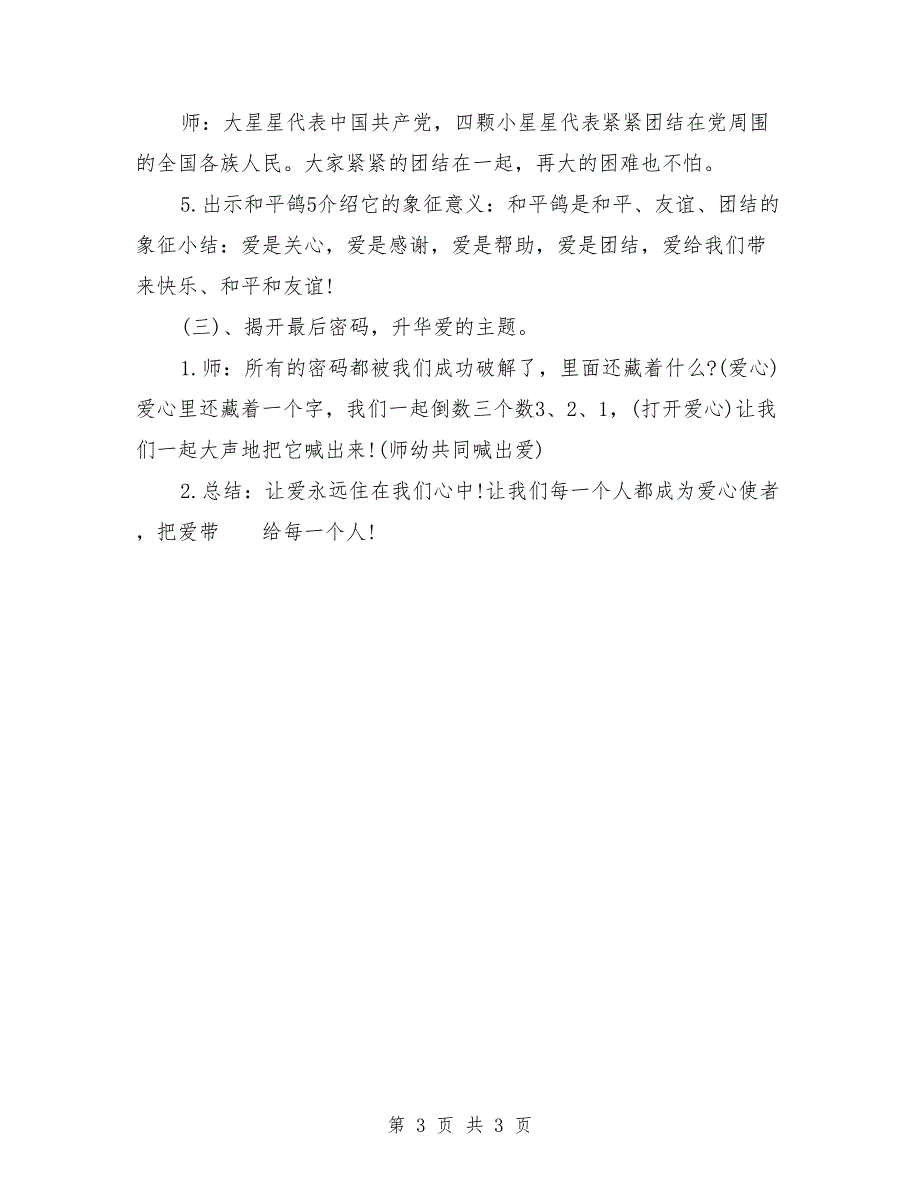 师：大星星代表中国共产党，四颗小星星代表紧紧团结在党周围
的全国各族人民。大家紧紧的团结在一起，再大的困难也不怕。
5.出示和平鸽5介绍它的象征意义：和平鸽是和平、友谊、团结的
象征小结：爱是关心，爱是感谢，爱是帮助，爱是团结，爱给我们带
来快乐、和平和友谊!
(三)、揭开最后密码，升华爱的主题。
1.师：所有的密码都被我们成功破解了，里面还藏着什么?(爱心)
爱心里还藏着一个字，我们一起倒数三个数3、2、1，(打开爱心)让我
们一起大声地把它喊出来!(师幼共同喊出爱)
2.总结：让爱永远住在我们心中!让我们每一个人都成为爱心使者
，把爱带　　给每一个人!
第 3 页 共 3 页